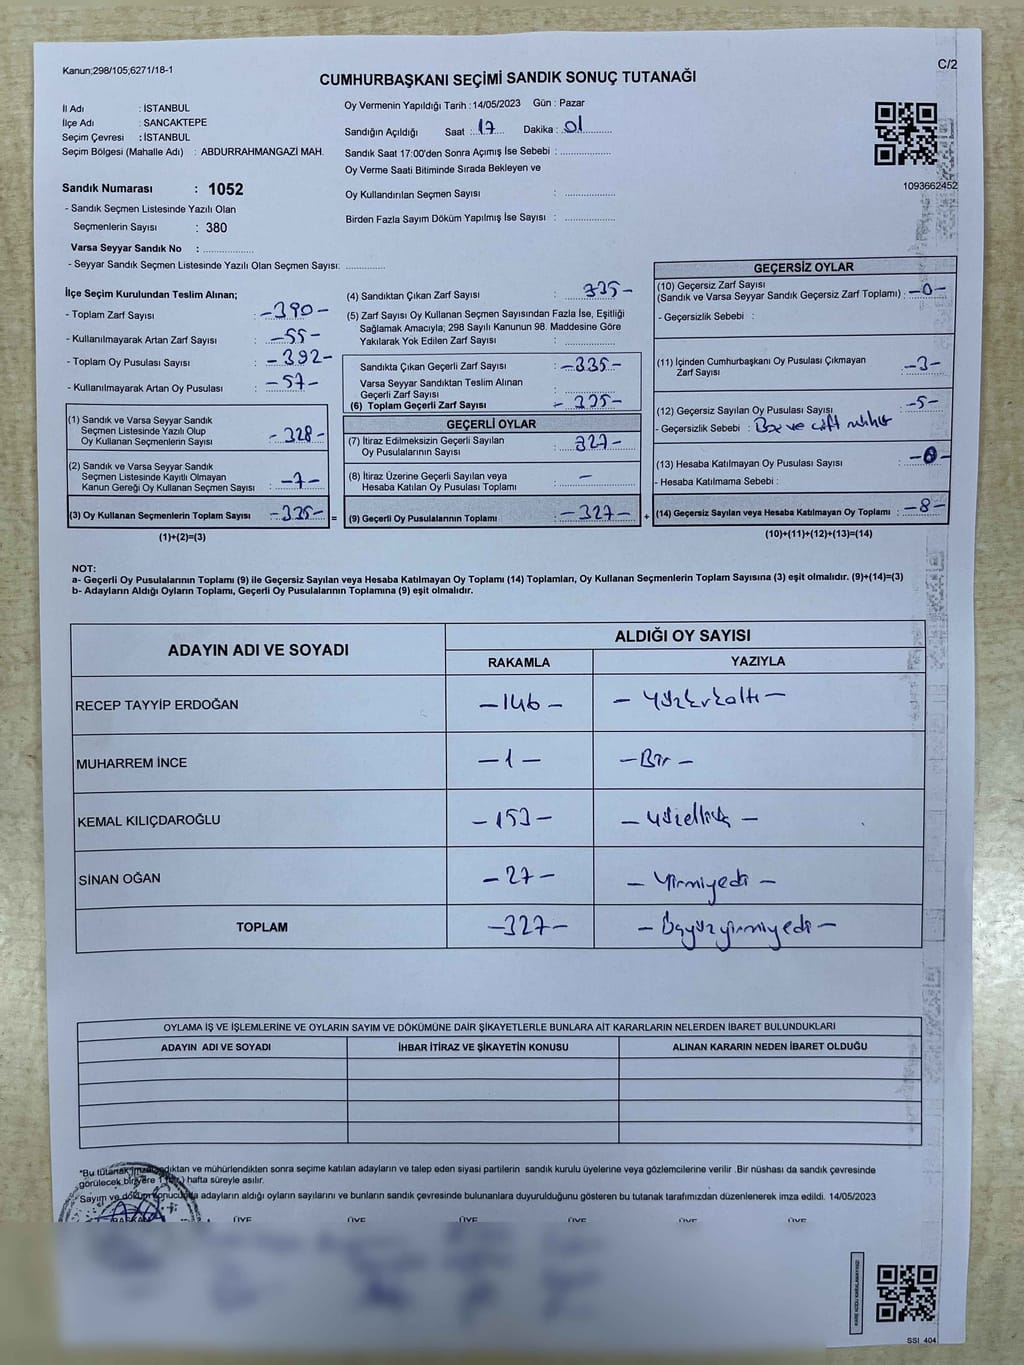 Kanun;298/105;6271/18-1
C/2
CUMHURBAŞKANI SEÇİMİ SANDIK SONUÇ TUTANAĞI
İl Adı : İSTANBUL
İlçe Adı : SANCAKTEPE
Seçim Çevresi : İSTANBUL
Seçim Bölgesi (Mahalle Adı) : ABDURRAHMANGAZİ MAH.
Oy Vermenin Yapıldığı Tarih :14/05/2023 Gün : Pazar
Sandığın Açıldığı Saat : 17 Dakika : 01
Sandık Saat 17:00'den Sonra Açımış İse Sebebi :
Oy Verme Saati Bitiminde Sırada Bekleyen ve
Oy Kullandırılan Seçmen Sayısı :
Birden Fazla Sayım Döküm Yapılmış İse Sayısı :
1093662452
Sandık Numarası : 1052
- Sandık Seçmen Listesinde Yazılı Olan
Seçmenlerin Sayısı : 380
Varsa Seyyar Sandık No :
- Seyyar Sandık Seçmen Listesinde Yazılı Olan Seçmen Sayısı:
İlçe Seçim Kurulundan Teslim Alınan;
- Toplam Zarf Sayısı : -390-
- Kullanılmayarak Artan Zarf Sayısı : -55-
- Toplam Oy Pusulası Sayısı : -392-
- Kullanılmayarak Artan Oy Pusulası : -57-
(1) Sandık ve Varsa Seyyar Sandık
Seçmen Listesinde Yazılı Olup
Oy Kullanan Seçmenlerin Sayısı : -328-
(2) Sandık ve Varsa Seyyar Sandık
Seçmen Listesinde Kayıtlı Olmayan
Kanun Gereği Oy Kullanan Seçmen Sayısı : -7-
(3) Oy Kullanan Seçmenlerin Toplam Sayısı : -335- =
(1)+(2)=(3)
(4) Sandıktan Çıkan Zarf Sayısı : 335-
(5) Zarf Sayısı Oy Kullanan Seçmen Sayısından Fazla İse, Eşitliği
Sağlamak Amacıyla; 298 Sayılı Kanunun 98. Maddesine Göre
Yakılarak Yok Edilen Zarf Sayısı :
Sandıkta Çıkan Geçerli Zarf Sayısı : -335-
Varsa Seyyar Sandıktan Teslim Alınan
Geçerli Zarf Sayısı :
(6) Toplam Geçerli Zarf Sayısı : - 335-
GEÇERLİ OYLAR
(7) İtiraz Edilmeksizin Geçerli Sayılan
Oy Pusulalarının Sayısı : 327-
(8) İtiraz Üzerine Geçerli Sayılan veya
Hesaba Katılan Oy Pusulası Toplamı : -
(9) Geçerli Oy Pusulalarının Toplamı : -327- +
GEÇERSİZ OYLAR
(10) Geçersiz Zarf Sayısı
(Sandık ve Varsa Seyyar Sandık Geçersiz Zarf Toplamı) : -0-
- Geçersizlik Sebebi :
(11) İçinden Cumhurbaşkanı Oy Pusulası Çıkmayan
Zarf Sayısı : -3-
(12) Geçersiz Sayılan Oy Pusulası Sayısı : -5-
- Geçersizlik Sebebi : Boş ve çift mühür
(13) Hesaba Katılmayan Oy Pusulası Sayısı : -0-
- Hesaba Katılmama Sebebi :
(14) Geçersiz Sayılan veya Hesaba Katılmayan Oy Toplamı : -8-
(10)+(11)+(12)+(13)=(14)
NOT:
a- Geçerli Oy Pusulalarının Toplamı (9) ile Geçersiz Sayılan veya Hesaba Katılmayan Oy Toplamı (14) Toplamları, Oy Kullanan Seçmenlerin Toplam Sayısına (3) eşit olmalıdır. (9)+(14)=(3)
b- Adayların Aldığı Oyların Toplamı, Geçerli Oy Pusulalarının Toplamına (9) eşit olmalıdır.
ADAYIN ADI VE SOYADI ALDIĞI OY SAYISI
RAKAMLA YAZIYLA
RECEP TAYYİP ERDOĞAN -146- - Yüzkırkaltı -
MUHARREM İNCE -1- -Bir -
KEMAL KILIÇDAROĞLU -153- - Yüzelliüç -
SİNAN OĞAN -27- - Yirmiyedi -
TOPLAM -327- - Üçyüzyirmiyedi -
OYLAMA İŞ VE İŞLEMLERİNE VE OYLARIN SAYIM VE DÖKÜMÜNE DAİR ŞİKAYETLERLE BUNLARA AİT KARARLARIN NELERDEN İBARET BULUNDUKLARI
ADAYIN ADI VE SOYADI İHBAR İTİRAZ VE ŞİKAYETİN KONUSU ALINAN KARARIN NEDEN İBARET OLDUĞU
*Bu tutanak imzalandıktan ve mühürlendikten sonra seçime katılan adayların ve talep eden siyasi partilerin sandık kurulu üyelerine veya gözlemcilerine verilir .Bir nüshası da sandık çevresinde
görülecek bir yere 1 (bir) hafta süreyle asılır.
Sayım ve döküm sonucunda adayların aldığı oyların sayılarını ve bunların sandık çevresinde bulunanlara duyurulduğunu gösteren bu tutanak tarafımızdan düzenlenerek imza edildi. 14/05/2023
BAŞKAN ÜYE ÜYE ÜYE ÜYE ÜYE ÜYE
SSI_404